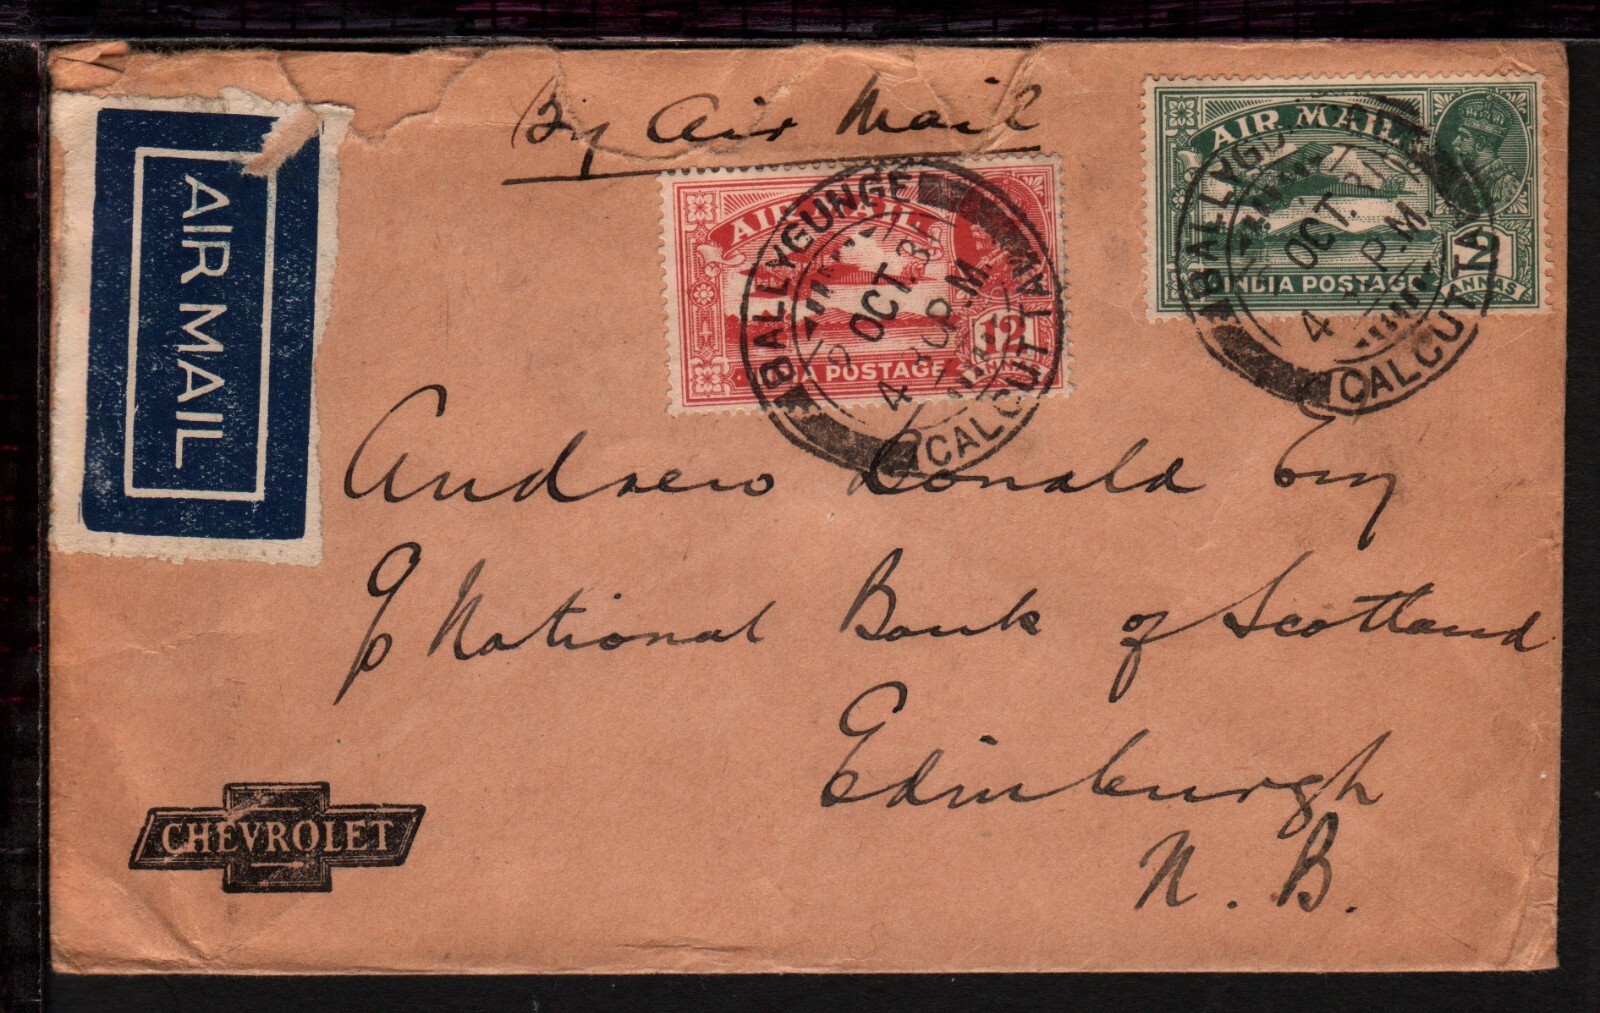 By Air Mail
AIR MAIL
AIR MAIL
POSTAGE
12
AIR MAIL
INDIA POSTAGE
2
ANNAS
BALLYGUNGE
OCT. 3
4 30 P.M.
CALCUTTA
BALLYGU
OCT. 31
4 P.M.
CALCUTTA
Andrew Donald Esq
c/o National Bank of Scotland
Edinburgh
N. B.
CHEVROLET